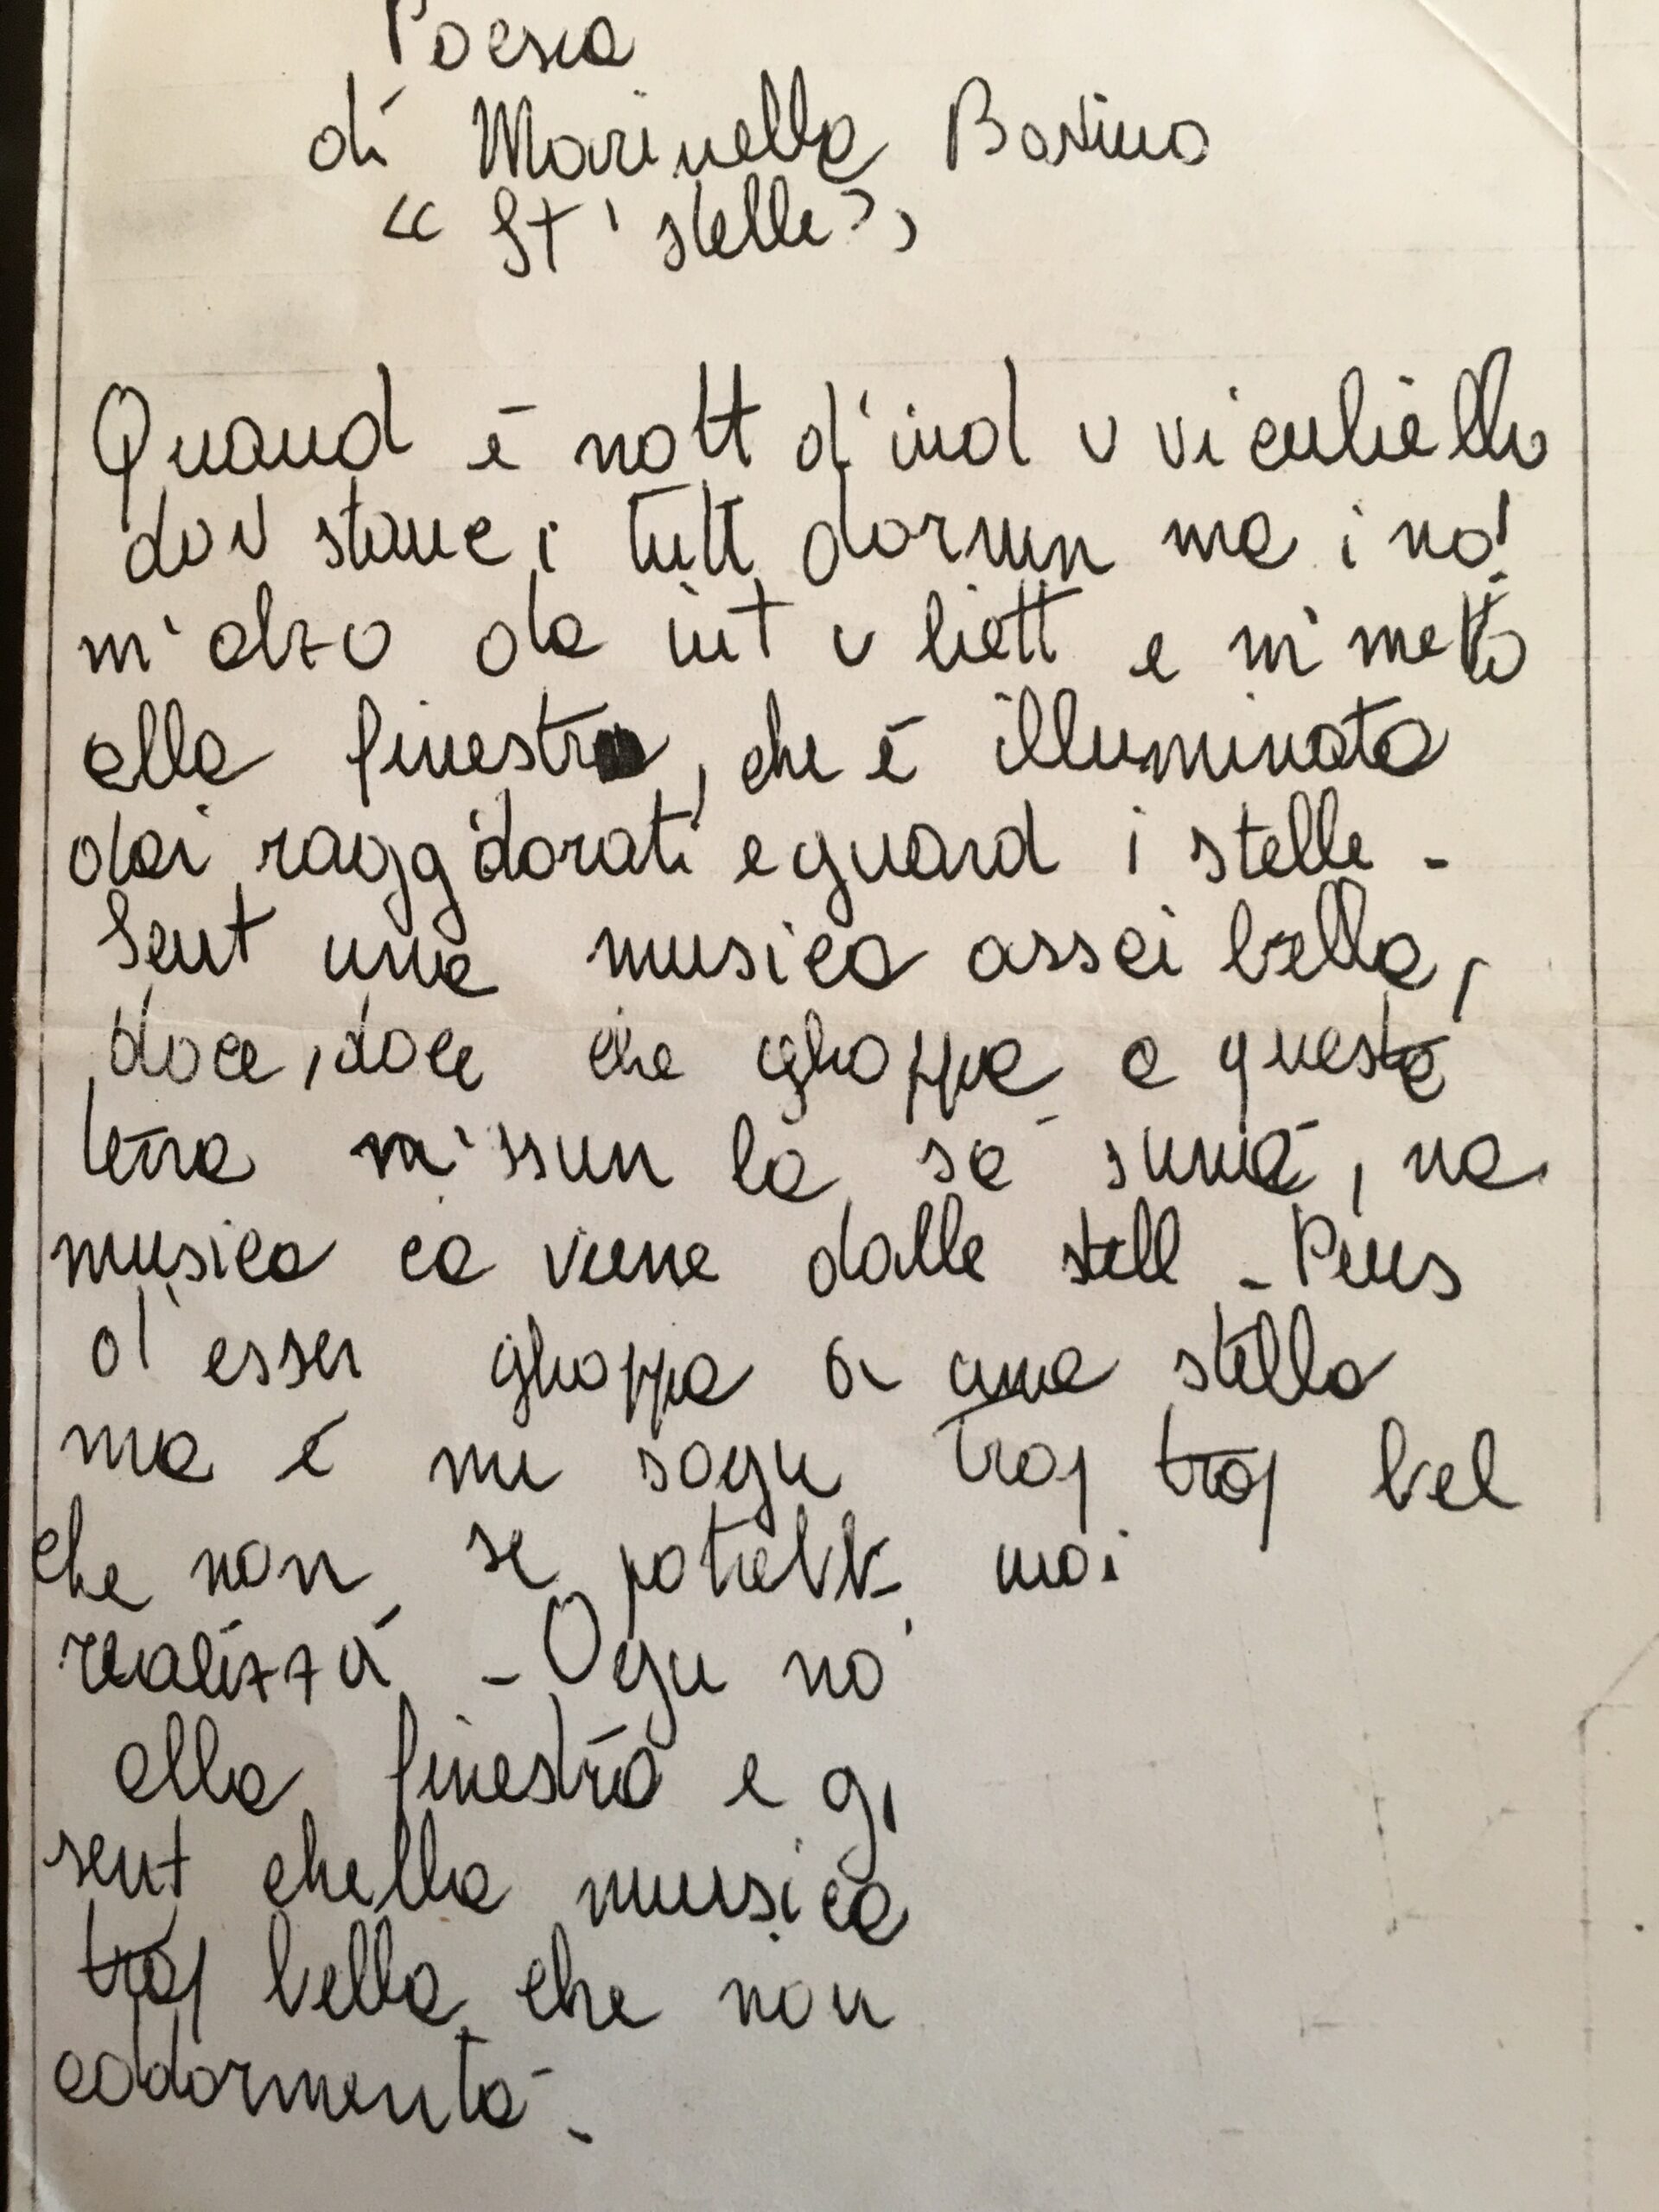 Poesia
di Marinella Bostino
« St' stelle »
Quand è nott d'ind u viculiello
dov stanc i tutt dormn ma i no!
m'alzo da int u liett e m'metto
alla finestra, che è illuminata
dai ragg dorati e guard i stelle -
Sent una musica assai bella,
doce, doce che ghoppa a questa
terra n'ssun la sà sunà, na
musica ca viene dalle stell - Pens
d'esser ghoppa a una stella
ma è nu sogn troj troj bel
che non se potrebb mai
realizzà - Ogn no
alla finestra e g,
sent chella musica
troj bella che non
addormentà -